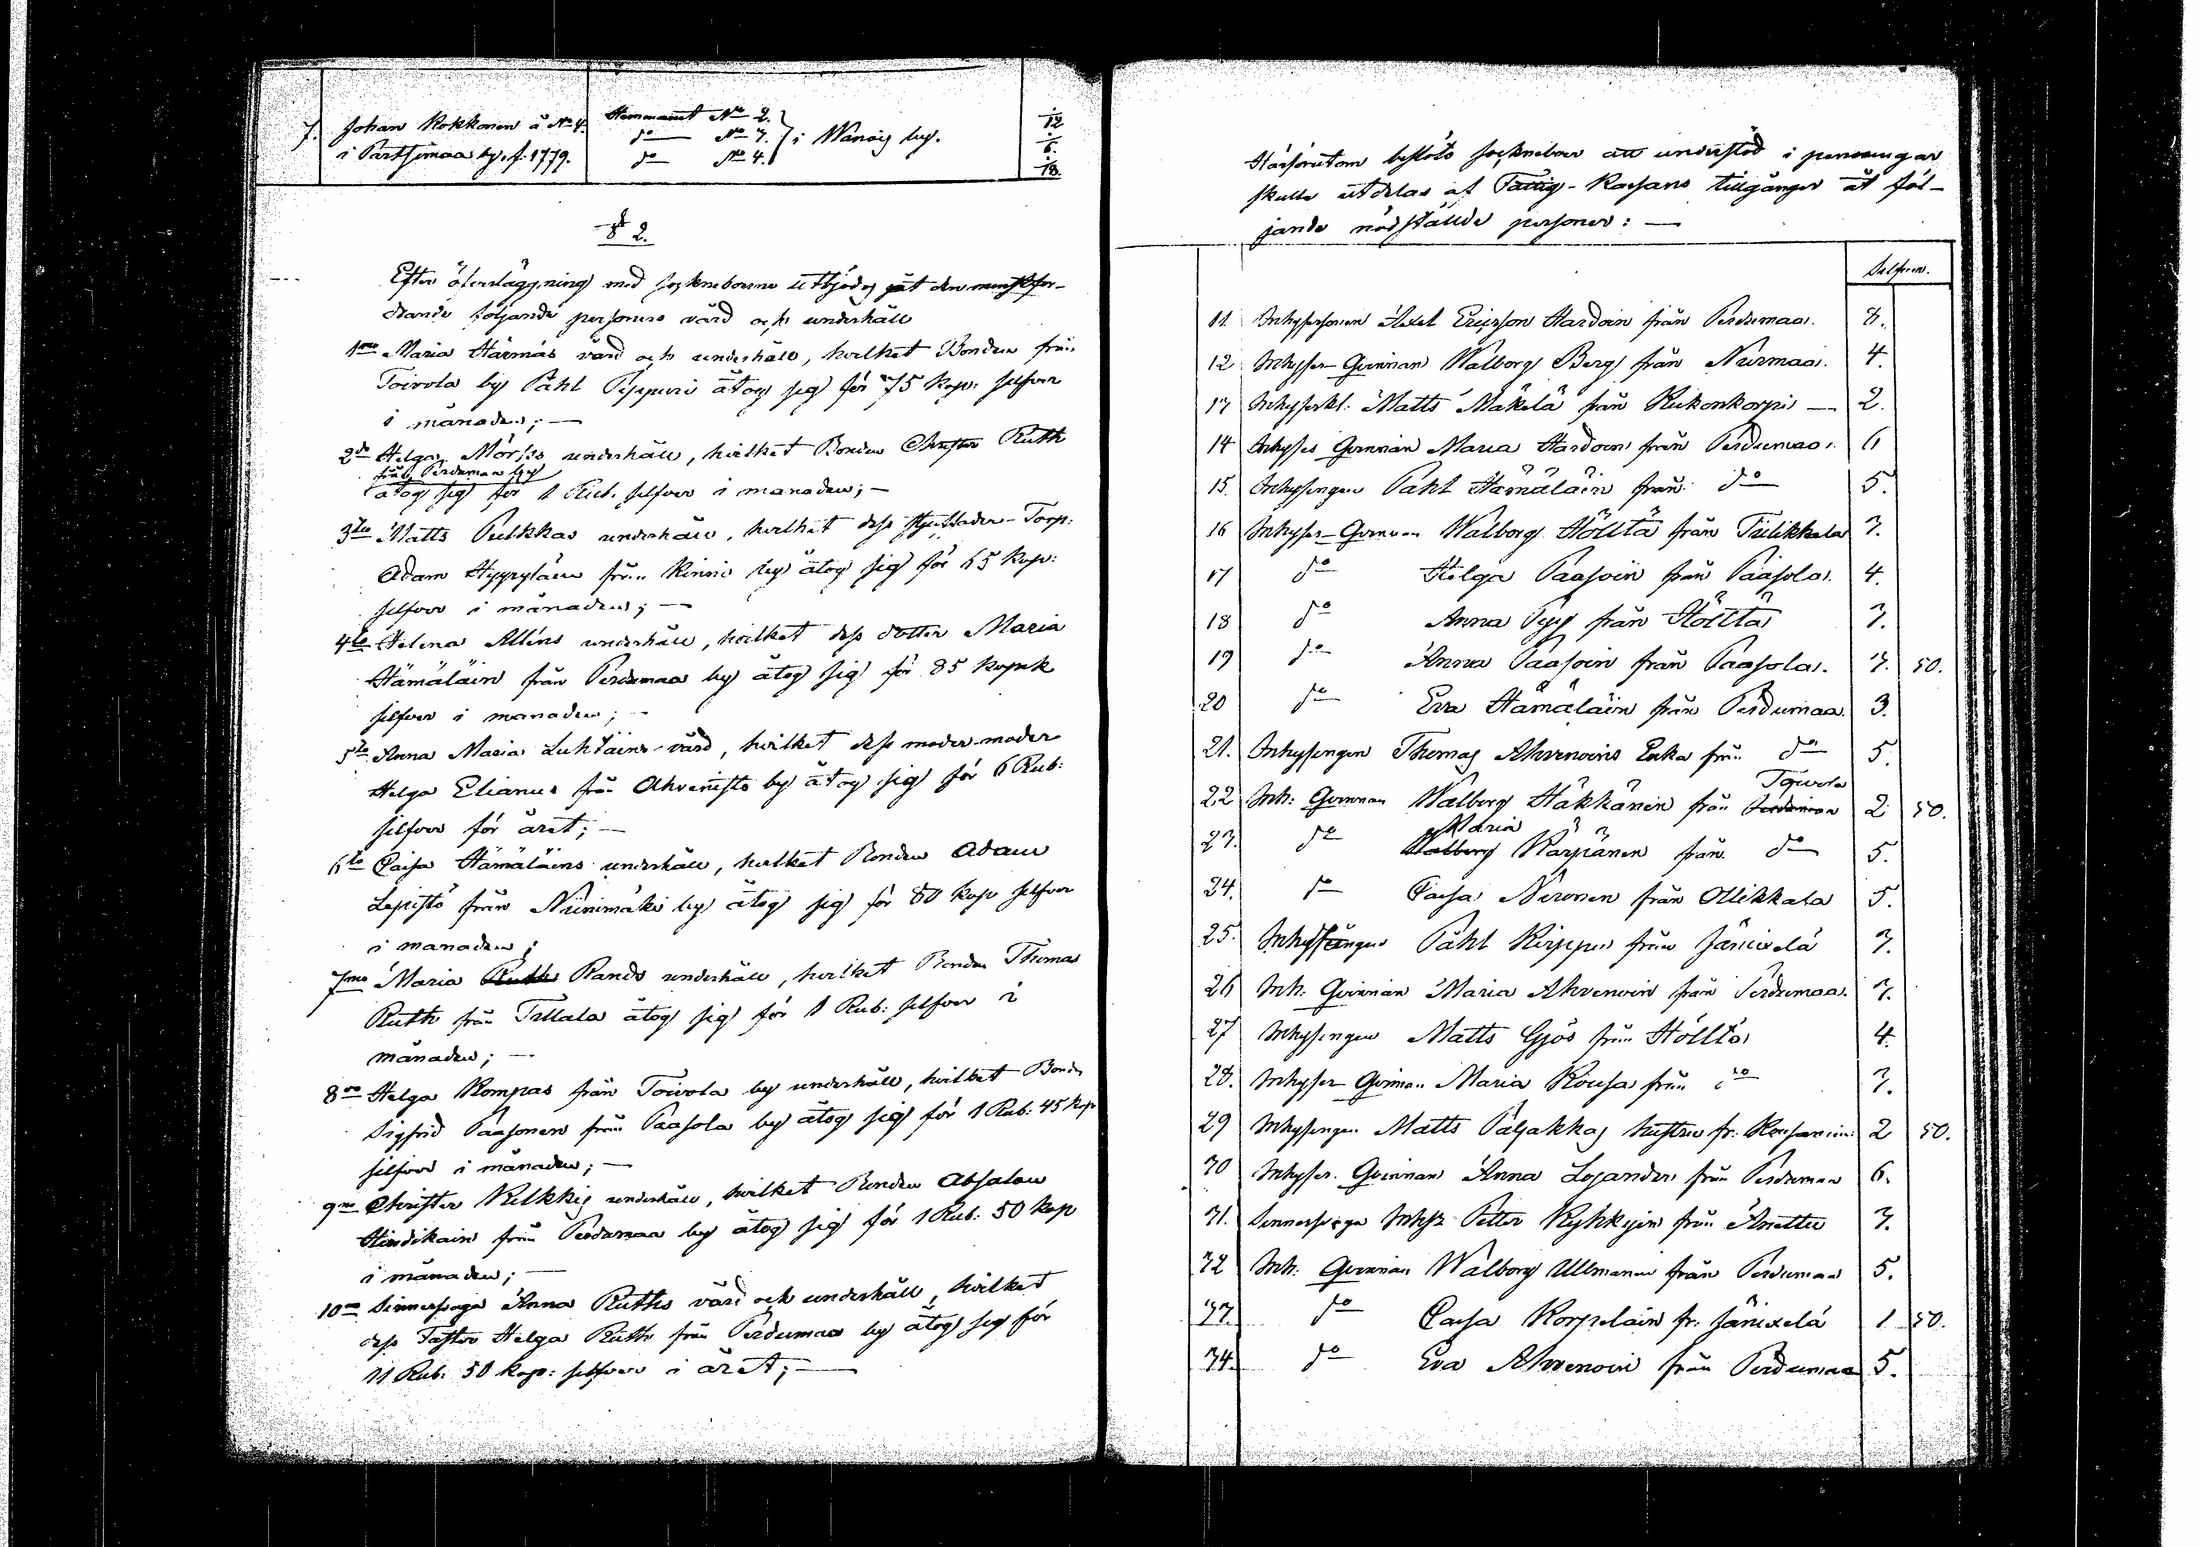 7. Johan Kokkonen å No 4. Hemmanet No 2. 1/12
i Parttimaa by, f. 1779. do No 7. i Wanois by. 1/6.
do No 4. 1/18.
§ 2.
Efter öfverläggning med sockneboerne utbjöds åt den minstfor-
drande följande personers vård och underhåll
1mo Maria Härmäs vård och underhåll, hvilket Bonden från
Toivola by Påhl Pippuri åtog sig för 75 kop: silfver
i månaden; —
2do Helga Mörsös underhåll, hvilket Bonden Christer Ruth
från Perdumaa by
åtog sig för 1 Rub. silfver i månaden; —
3tio Matts Pulkkas underhåll, hvilket dess Torp:
Adam Hyyryläin från Kinnis by åtog sig för 65 kop:
silfver i månaden; —
4to Helena Alléns underhåll, hvilket dess dotter Maria
Hämäläin från Perdumaa by åtog sig för 85 kopek
silfver i månaden; —
5to Anna Maria Luhtains vård, hvilket dess moder-moder
Helga Elianus från Ahvenisto by åtog sig för 6 Rub:
silfver för året; —
6to Caisa Hämäläins underhåll, hvilket Bonden Adam
Lepistö från Niinimäki by åtog sig för 80 kop silfver
i månaden;
7mo Maria Ruths Rands underhåll, hvilket Bonden Thomas
Ruth från Tillala åtog sig för 1 Rub: silfver i
månaden; —
8vo Helga Kompas från Toivola by underhåll, hvilket Bonden
Sigfrid Paasonen från Paasola by åtog sig för 1 Rub: 45 kop
silfver i månaden; —
9no Christer Kilkkis underhåll, hvilket Bonden Absalon
Hindikain från Perdumaa by åtog sig för 1 Rub: 50 kop
i månaden; —
10mo Sinnessvaga Anna Ruths vård och underhåll, hvilket
dess Faster Helga Ruth från Perdumaa by åtog sig för
11 Rub: 50 kop: silfver i året; —
Härförutom beslöto sockneboer att understöd i penningar
skulle utdelas af Fattig-Kassans tillgångar åt föl-
jande nödstälde personer: —
Silfver.
11 Inhysesman Axel Ericsson Hardoin från Perdumaa. 8.
12 Inhyses Qvinnan Walborg Berg från Nurmaa. 4.
13 Inhyseskl. Matts Mäkelä från Kukonkorpi — 2.
14 Inhyses Qvinnan Maria Hardoin från Perdumaa. 6
15. Inhysingen Påhl Hämäläin från do 5.
16 Inhyses-Qvinnan Walborg Hölltä från Tillikkala 3.
17 do Helga Paasoin från Paasola. 4.
18 do Anna Pyy från Hölltä 3.
19 do Anna Paasoin från Paasola. 3. 50.
20 do Eva Hämäläin från Perdumaa. 3.
21. Inhysingen Thomas Ahvenoins Enka från do 5.
Toivola
22 Inh: Qvinnan Walborg Häkkänin från Perdumaa 2 50.
Maria
23. do Walborg Kärpänen från do 5.
24. do Caisa Nironen från Ollikkala 5.
25. Inhysingen Påhl Kirppu från Jänixelä 3.
26 Inh. Qvinnan Maria Ahvenoin från Perdumaa. 3.
27 Inhysingen Matts Gjös från Hölltö 4.
28. Inhyses Qvinnan Maria Rousa från do 3.
29 Inhysingen Matts Päljakkas hustru fr. 2 50.
30 Inhyses. Qvinnan Anna Lojander från Perdumaa 6.
31. Sinnessvaga Inhys: Petter Kyhkyin från Anettu 3.
32 Inh: Qvinnan Walborg Ullmanen från Perdumaa 5.
33. do Caisa Korpelain fr. Jänixelä 1 50.
34. do Eva Ahvenoin från Perdumaa 5.